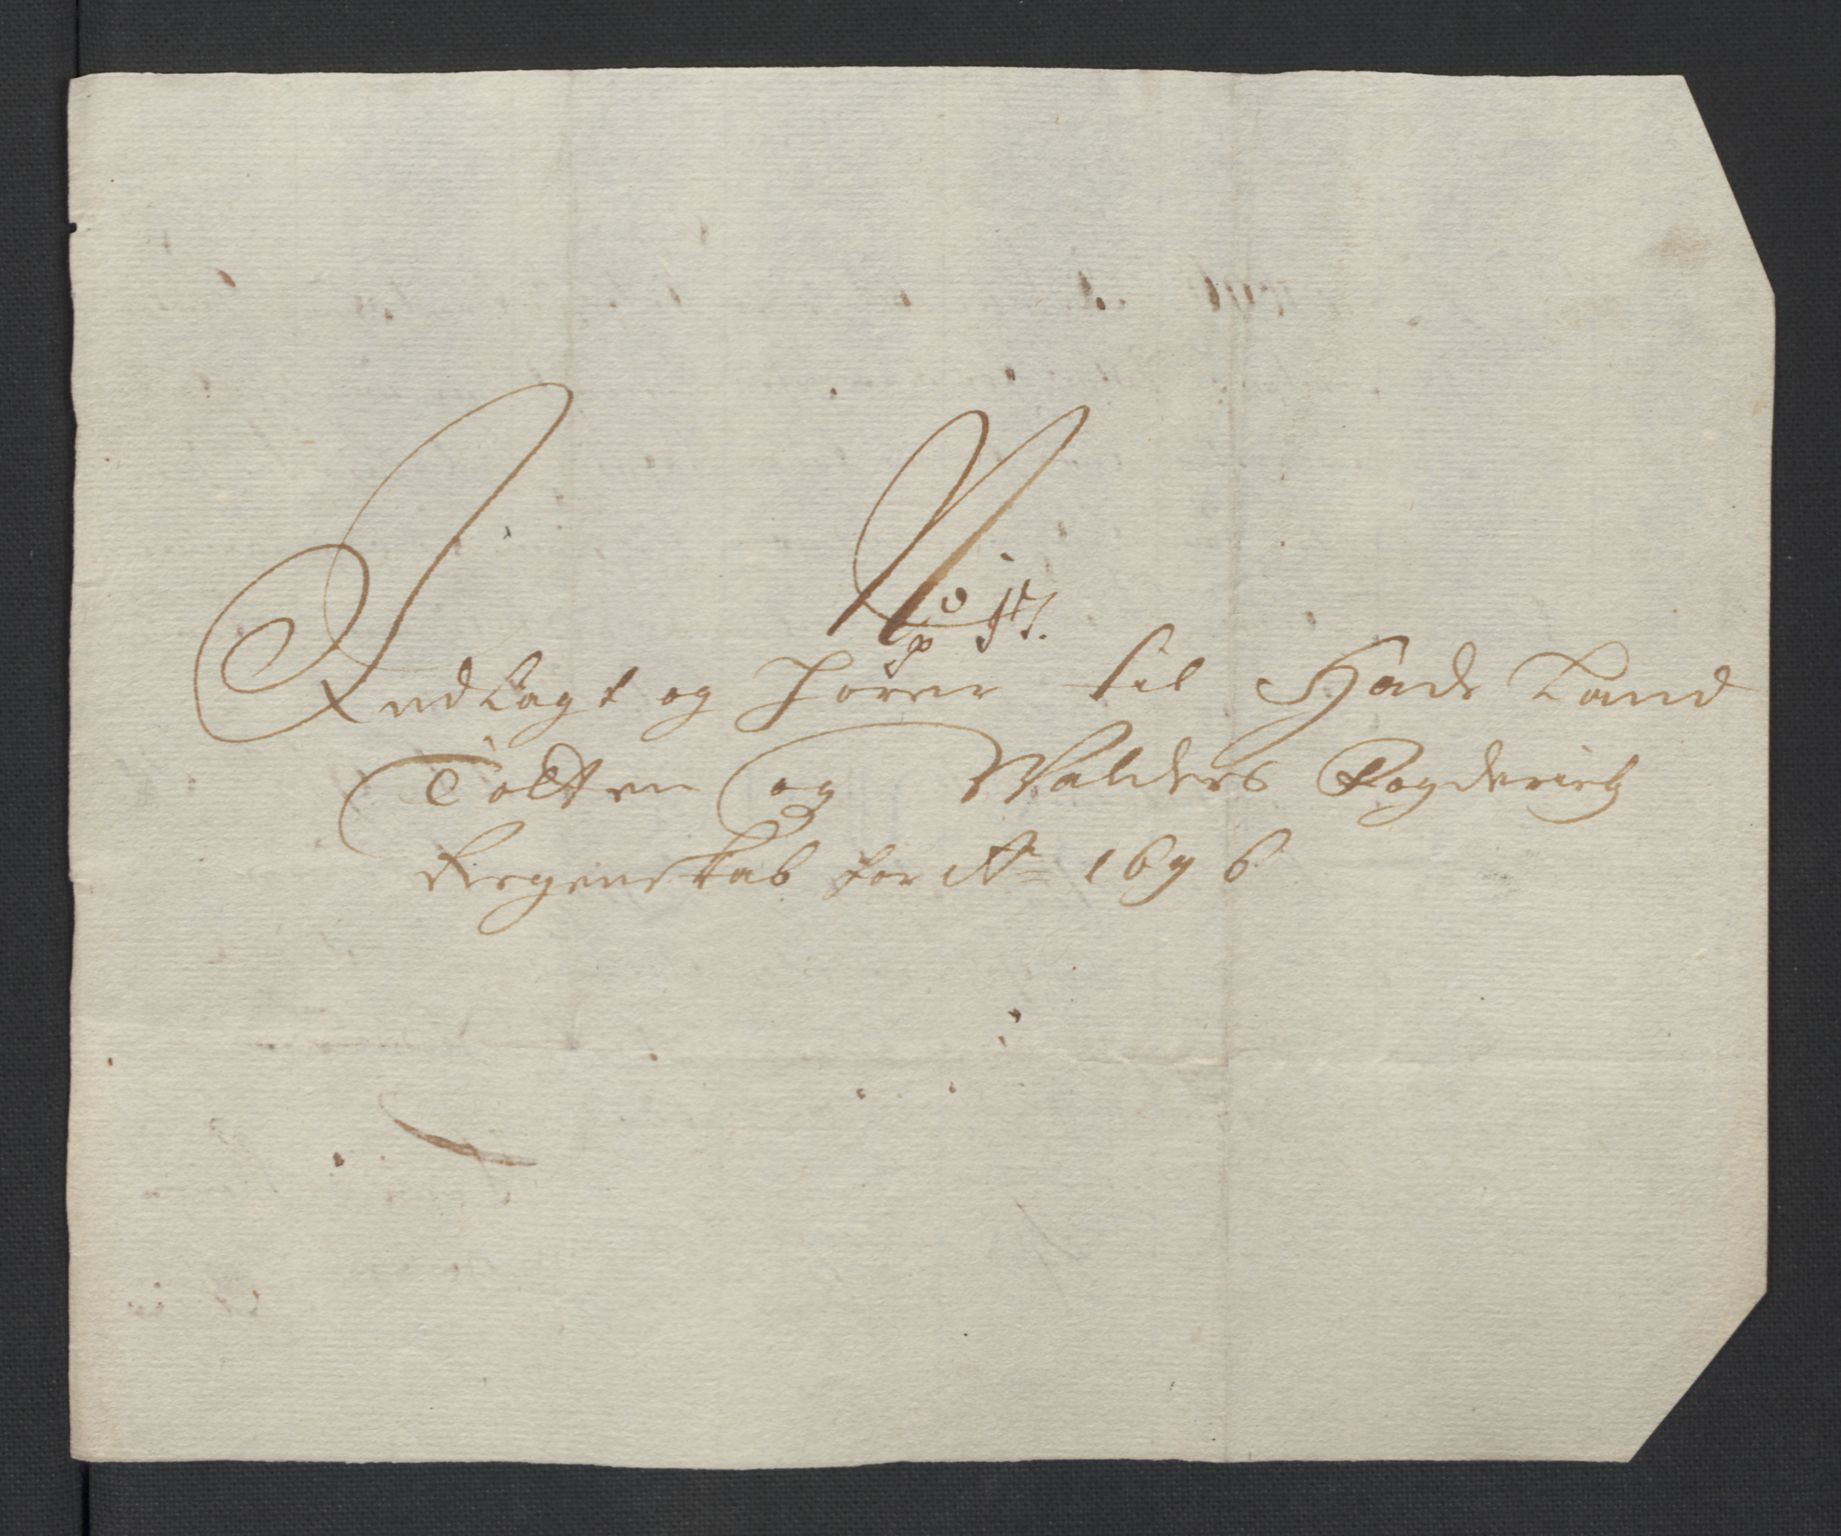 No
Indlagt og hører til Hade Land
Totten og Walders Fogderietz
Regenskab for Ao 1696